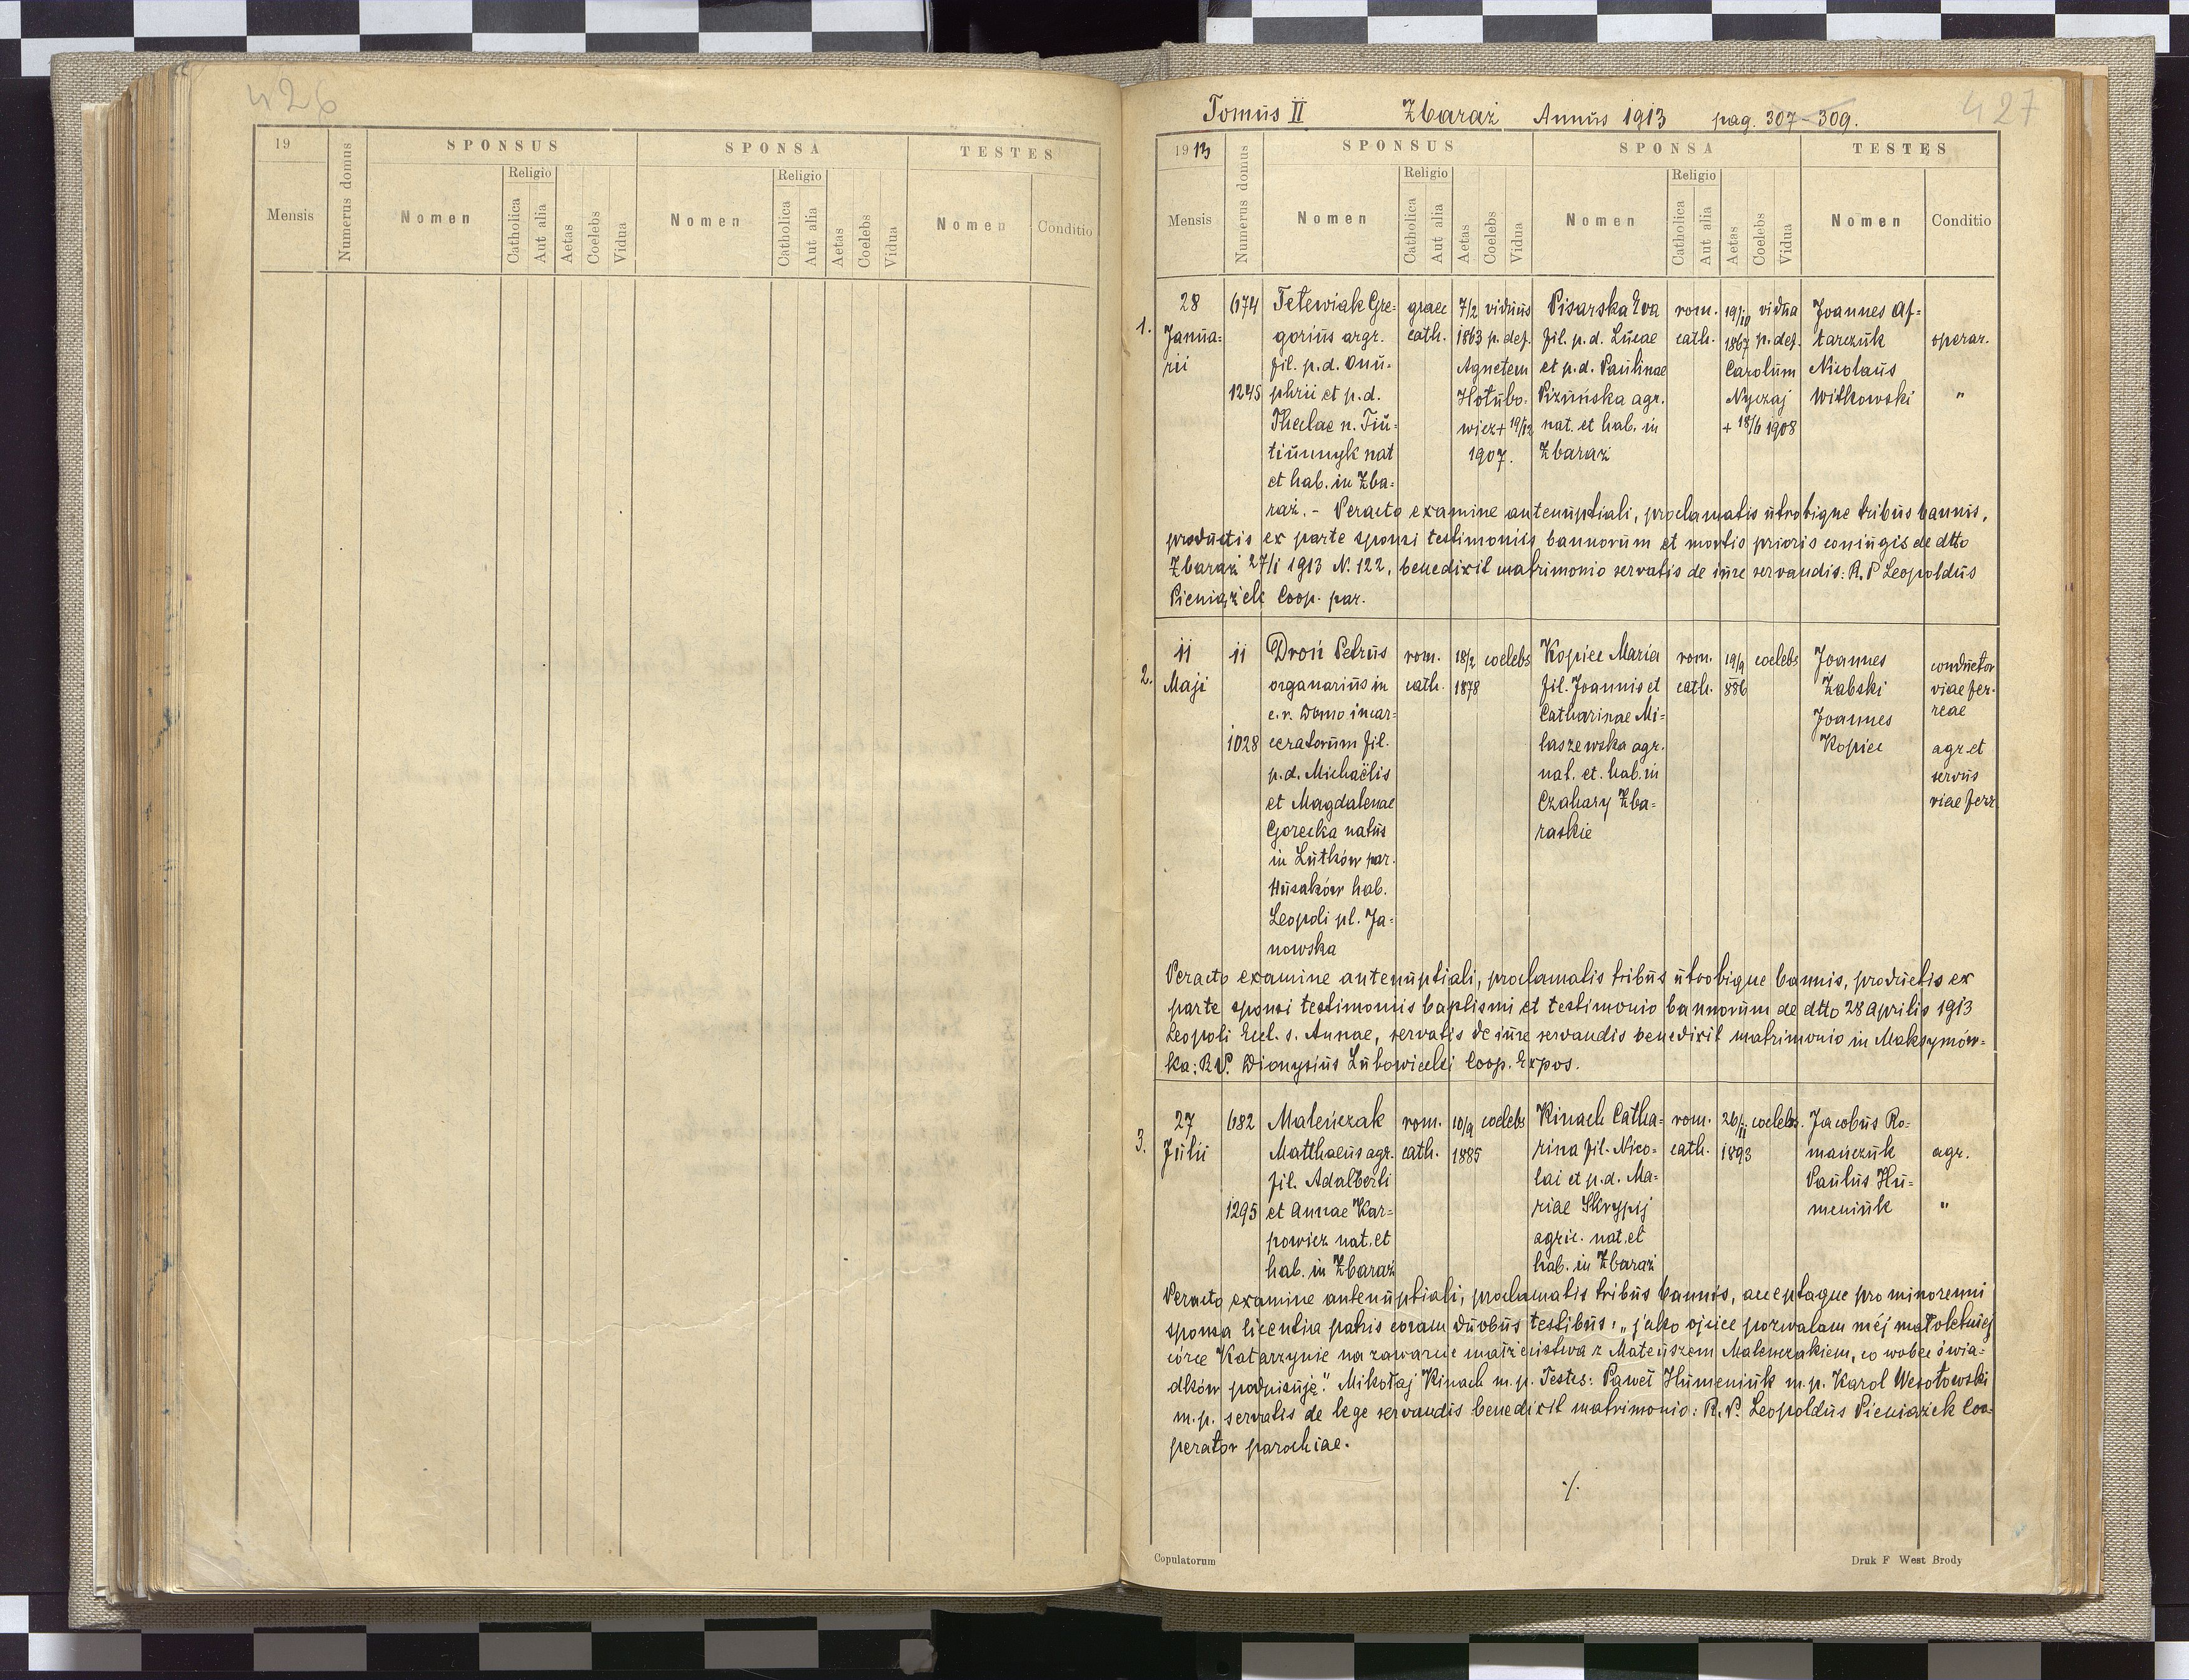 426
19
Mensis
Numerus domus
SPONSUS
Nomen
Religio
Catholica
Aut alia
Aetas
Coelebs
Vidua
SPONSA
Nomen
Religio
Catholica
Aut alia
Aetas
Coelebs
Vidua
TESTES
Nomen
Conditio
427
Tomus II Zbaraż Annus 1913 pag. 307-309.
1913
Mensis
Numerus domus
SPONSUS
Nomen
Religio
Catholica
Aut alia
Aetas
Coelebs
Vidua
SPONSA
Nomen
Religio
Catholica
Aut alia
Aetas
Coelebs
Vidua
TESTES
Nomen
Conditio
1.
28
Janua=
rii
674
1245
Tetewiak Gre=
gorius agr.
fil. p.d. Onu=
phrii et p.d.
Theclae n.
nat
et hab. in Zba=
raż. - Peracto examine antenuptiali, proclamatis utrobique tribus bannis,
graec
cath.
7/2 viduus
1863 p. def.
Agnetem
Hołubo=
wicz + 19/12
1907.
Pisarska Eva
fil. p.d. Lucae
et p.d. Paulinae
Pizuńska agr.
nat. et hab. in
Zbaraż
rom.
cath.
19/10 vidua
1867 p. def.
Carolum
Nyczaj
+ 18/6 1908
Joannes Af=
tarczuk
Nicolaus
Witkowski
operar.
"
productis ex parte sponsi testimoniis bannorum et mortis prioris coniugis de dtto
Zbaraż 27/1 1913 N. 122, benedixit matrimonio servatis de iure servandis: R. P Leopoldus
Pieniążek Coop. par.
2.
11
Maji
11
1028
Droń Petrus
organarius in
c.r. Domo incar=
ceratorum fil.
p.d. Michaëlis
et Magdalenae
Gorecka natus
in Lutków par.
Husaków hab.
Leopoli pl. Ja=
nowska
rom.
cath.
18/2 coelebs
1878
Kopiec Maria
fil. Joannis et
Catharinae Mi=
laszewska agr.
nat. et. hab. in
Czahary Zba=
raskie
rom.
cath.
19/9 coelebs
886
Joannes
Żabski
Joannes
Kopiec
conductor
viae fer=
reae
agr. et
servus
viae ferr.
Peracto examine antenuptiali, proclamatis tribus utrobique bannis, productis ex
parte sponsi testimoniis baptismi et testimonio bannorum de dtto 28 Aprilis 1913
Leopoli Eccl. s. Annae, servatis de iure servandis benedixit matrimonio in Maksymów=
ka: R. P. Dionysius Lubowiecki Coop. Expos.
3.
27
Julii
682
1295
Maleńczak
Matthaeus agr.
fil. Adalberti
et Annae Kar=
powicz nat. et
hab. in Zbaraż
rom.
cath.
10/9 coelebs
1885
Kinach Catha=
rina fil. Nico=
lai et p.d. Ma=
riae Skrypij
agric. nat. et
hab. in Zbaraż
rom.
cath.
26/11 coelebs.
1893
Jacobus Ro=
mańczuk
Paulus Hu=
meniuk
agr.
"
Peracto examine antenuptiali, proclamatis tribus bannis, acceptaque pro minorenni
sponsa licentia patris coram duobus testibus: „jako ojciec pozwalam mej małoletniej
córce Katarzynie na zawarcie małżeństwa z Mateuszem Maleńczakiem, co wobec świa=
dków podpisuję." Mikołaj Kinach m.p. Testes: Paweł Humeniuk m.p. Karol Wesołowski
m.p. servatis de lege servandis benedixit matrimonio: R. P. Leopoldus Pieniążek Coo=
perator parochiae.
./.
Copulatorum
Druk F West Brody